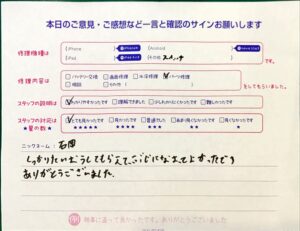 本日のご意見・ご感想など一言と確認のサインお願いします
修理機種は
iPhone
Android
iPad
その他 スイッチ
です。
修理内容は
バッテリー交換 画面修理 水没修理 パーツ修理
相談 その他
をしてもらいました。
スタッフの説明は
わかりやすかったです 理解できました 少しわかりにくかったです 難しかったです
スタッフの対応は
★星の数★
とても良かったです 良かったです 普通でした あまり良くなかったです 良くなかったです
★★★★★ ★★★★ ★★★ ★★ ★
ニックネーム: 石岡
しっかりたいおうしてもらえて、ぶじになおってよかったです
ありがとうございました。
無事に直って良かったです。ありがとうございました